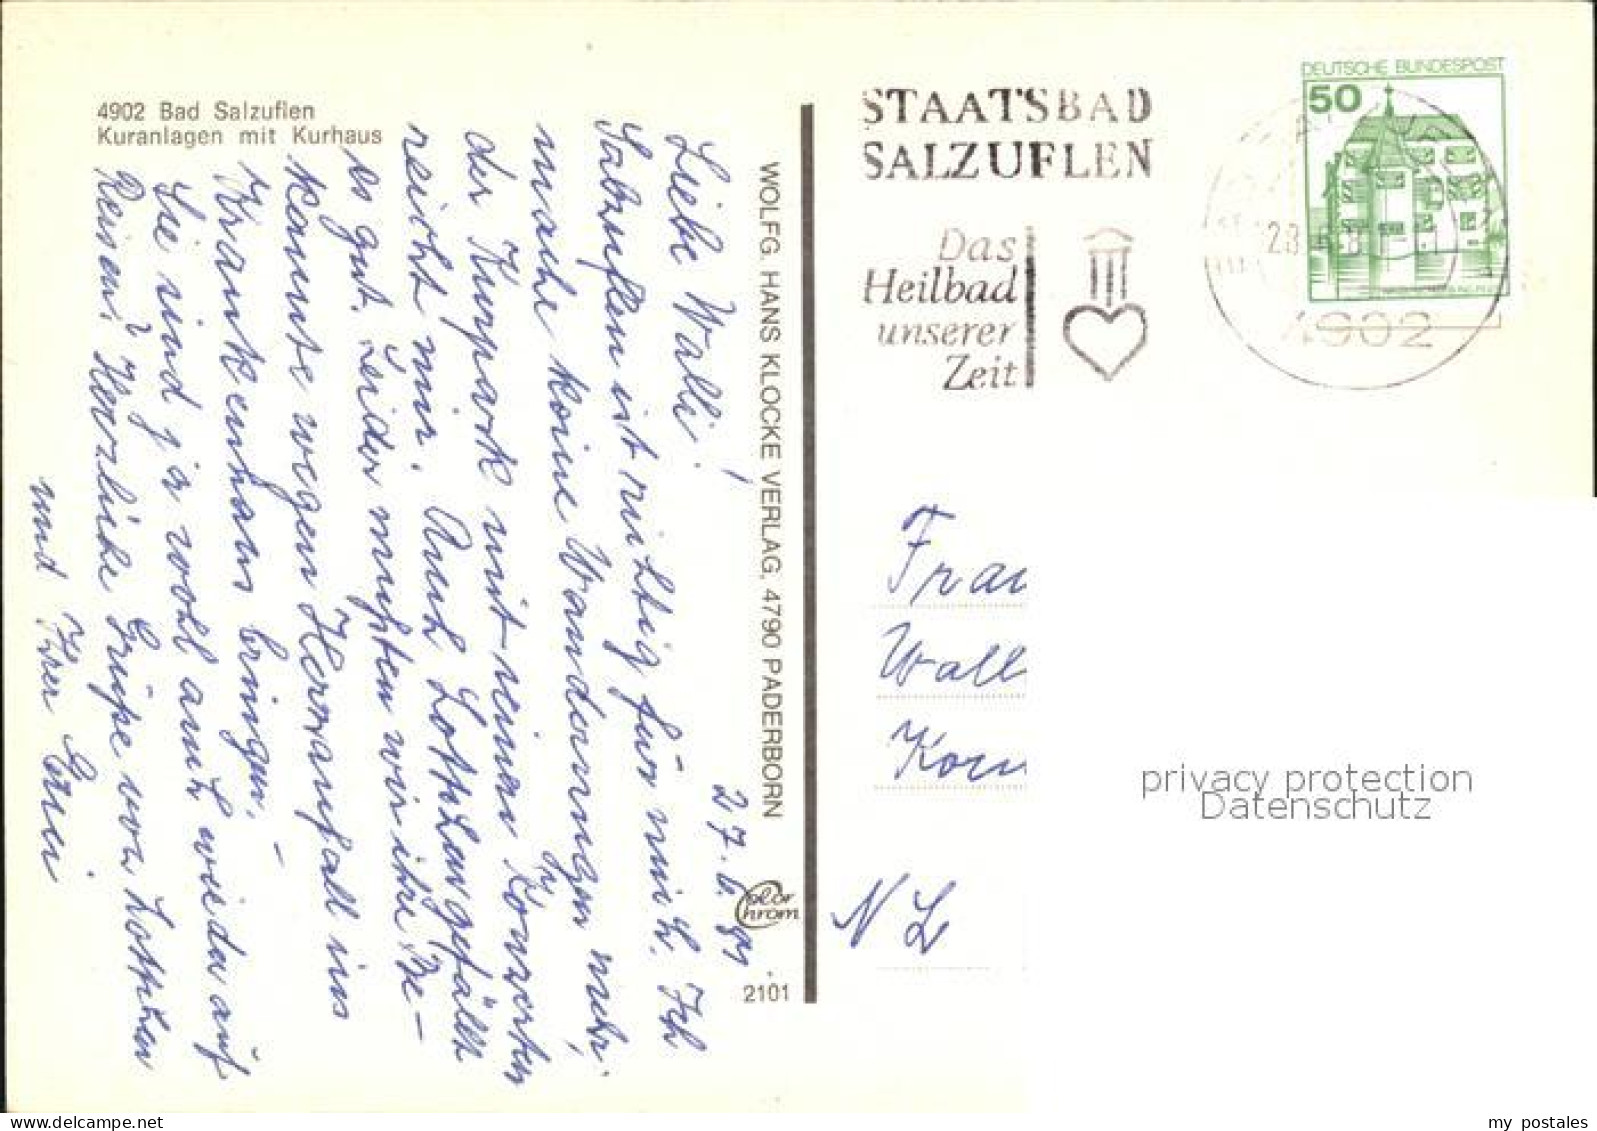 4902 Bad Salzuflen
Kuranlagen mit Kurhaus
27.6.
Liebe Walli!
Salzuflen ist richtig für mich. Ich
mache keine Wanderungen mehr,
der Kurpark mit seinen Konzerten
reicht mir. Auch Lottchen gefällt
es gut. Leider mußten wir ihre Be-
kannte wegen Herzanfall ins
Krankenhaus bringen. –
Sie sind ja wohl auch wieder auf
Reisen? Herzliche Grüße von Lottchen
und Ihrer
WOLFG. HANS KLOCKE VERLAG, 4790 PADERBORN
Color
Chrom
2101
STAATSBAD
SALZUFLEN
Das
Heilbad
unserer
Zeit
DEUTSCHE BUNDESPOST
50
28
4902
Frau
Wall
Korn
NL
privacy protection
Datenschutz
my postales